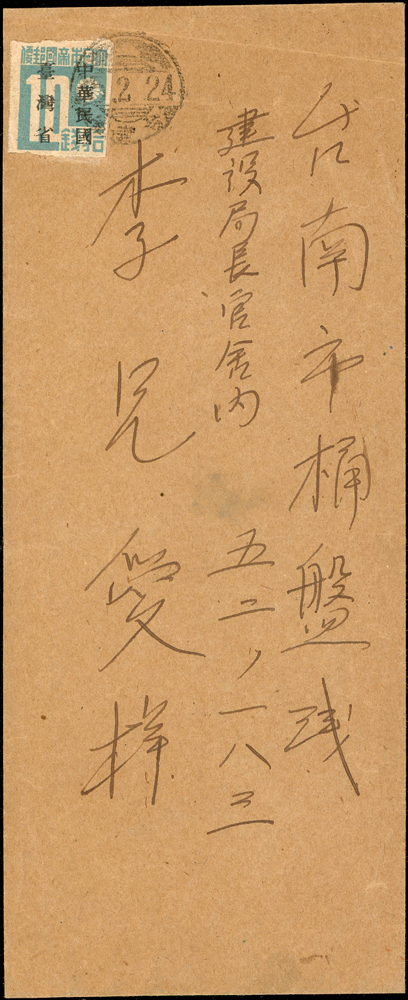 台南市桶盤浅
建設局長官舍内
五二、一八三
李兄愛様
大日本帝國郵便
10
拾錢
中華民國
臺灣省
.2.24